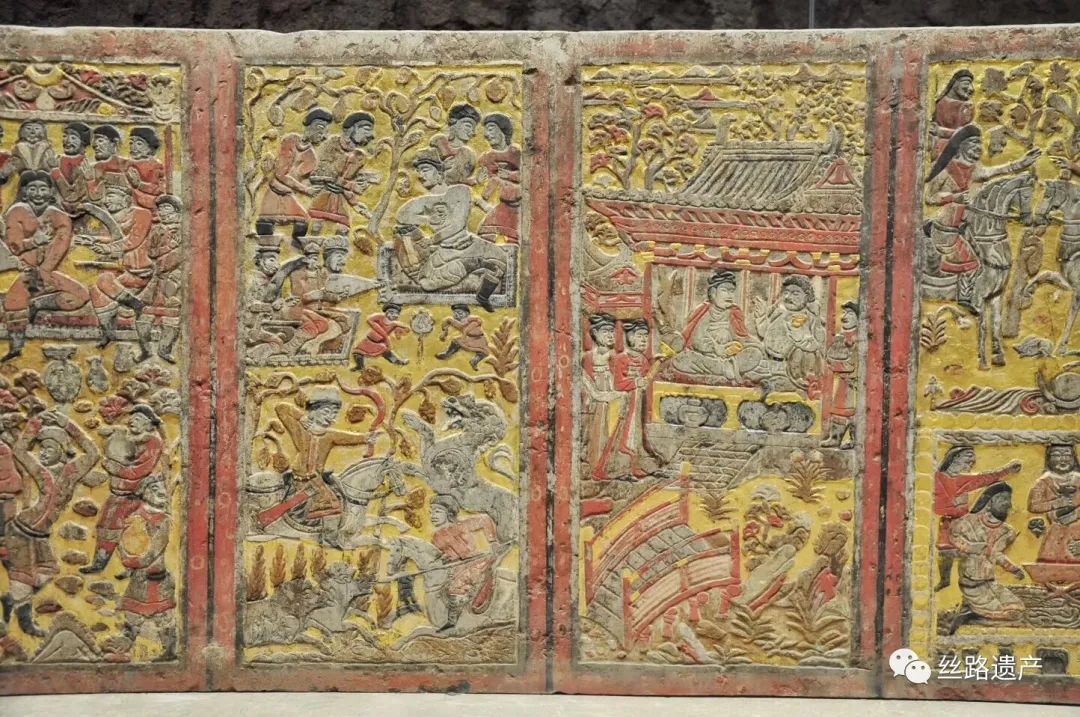 丝路遗产